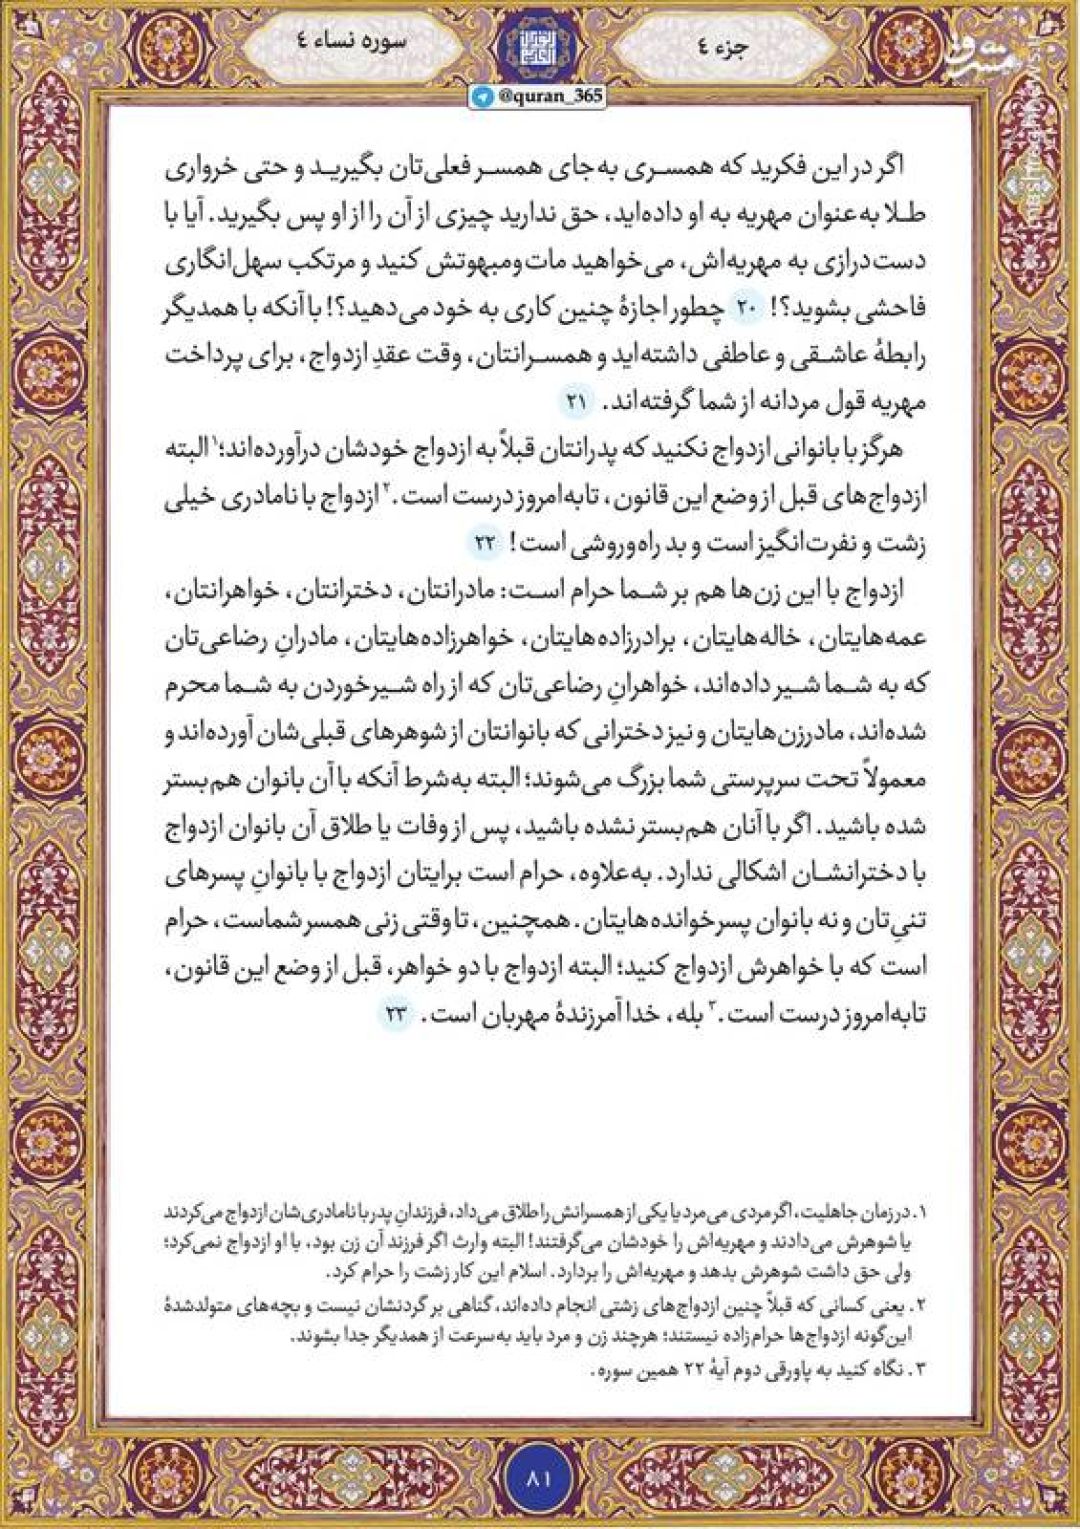 جزء ٤
سوره نساء ٤
@quran_365
مشرق
mashreghnews.ir
اگر در این فکرید که همسری به‌جای همسر فعلی‌تان بگیرید و حتی خرواری
طلا به‌عنوان مهریه به او داده‌اید، حق ندارید چیزی از آن را از او پس بگیرید. آیا با
دست‌درازی به مهریه‌اش، می‌خواهید مات‌ومبهوتش کنید و مرتکب سهل‌انگاری
فاحشی بشوید؟! ۲۰ چطور اجازهٔ چنین کاری به خود می‌دهید؟! باآنکه با همدیگر
رابطهٔ عاشقی و عاطفی داشته‌اید و همسرانتان، وقت عقدِ ازدواج، برای پرداخت
مهریه قول مردانه از شما گرفته‌اند. ۲۱
هرگز با بانوانی ازدواج نکنید که پدرانتان قبلاً به ازدواج خودشان درآورده‌اند؛۱ البته
ازدواج‌های قبل از وضع این قانون، تابه‌امروز درست است.۲ ازدواج با نامادری خیلی
زشت و نفرت‌انگیز است و بد راه‌وروشی است! ۲۲
ازدواج با این زن‌ها هم بر شما حرام است: مادرانتان، دخترانتان، خواهرانتان،
عمه‌هایتان، خاله‌هایتان، برادرزاده‌هایتان، خواهرزاده‌هایتان، مادرانِ رضاعی‌تان
که به شما شیر داده‌اند، خواهرانِ رضاعی‌تان که از راه شیرخوردن به شما محرم
شده‌اند، مادرزن‌هایتان و نیز دخترانی که بانوانتان از شوهرهای قبلی‌شان آورده‌اند و
معمولاً تحت سرپرستی شما بزرگ می‌شوند؛ البته به‌شرط آنکه با آن بانوان هم‌بستر
شده باشید. اگر با آنان هم‌بستر نشده باشید، پس از وفات یا طلاق آن بانوان ازدواج
با دخترانشان اشکالی ندارد. به‌علاوه، حرام است برایتان ازدواج با بانوانِ پسرهای
تنیِ‌تان و نه بانوان پسرخوانده‌هایتان. همچنین، تا وقتی زنی همسر شماست، حرام
است که با خواهرش ازدواج کنید؛ البته ازدواج با دو خواهر، قبل از وضع این قانون،
تابه‌امروز درست است.۳ بله، خدا آمرزندهٔ مهربان است. ۲۳
۱. در زمان جاهلیت، اگر مردی می‌مرد یا یکی از همسرانش را طلاق می‌داد، فرزندانِ پدر با نامادری‌شان ازدواج می‌کردند
یا شوهرش می‌دادند و مهریه‌اش را خودشان می‌گرفتند! البته وارث اگر فرزند آن زن بود، با او ازدواج نمی‌کرد؛
ولی حق داشت شوهرش بدهد و مهریه‌اش را بردارد. اسلام این کار زشت را حرام کرد.
۲. یعنی کسانی که قبلاً چنین ازدواج‌های زشتی انجام داده‌اند، گناهی بر گردنشان نیست و بچه‌های متولدشدهٔ
این‌گونه ازدواج‌ها حرام‌زاده نیستند؛ هرچند زن و مرد باید به‌سرعت از همدیگر جدا بشوند.
۳. نگاه کنید به پاورقی دوم آیهٔ ۲۲ همین سوره.
۸۱